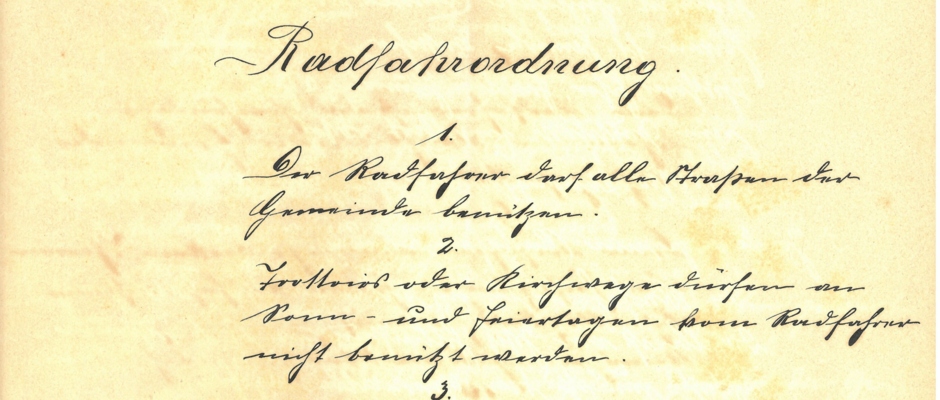 Radfahrordnung.
1.
Der Radfahrer darf alle Straßen der
Gemeinde benützen.
2.
Trottoirs oder Kirchwege dürfen an
Sonn- und Feiertagen vom Radfahrer
nicht benützt werden.
3.